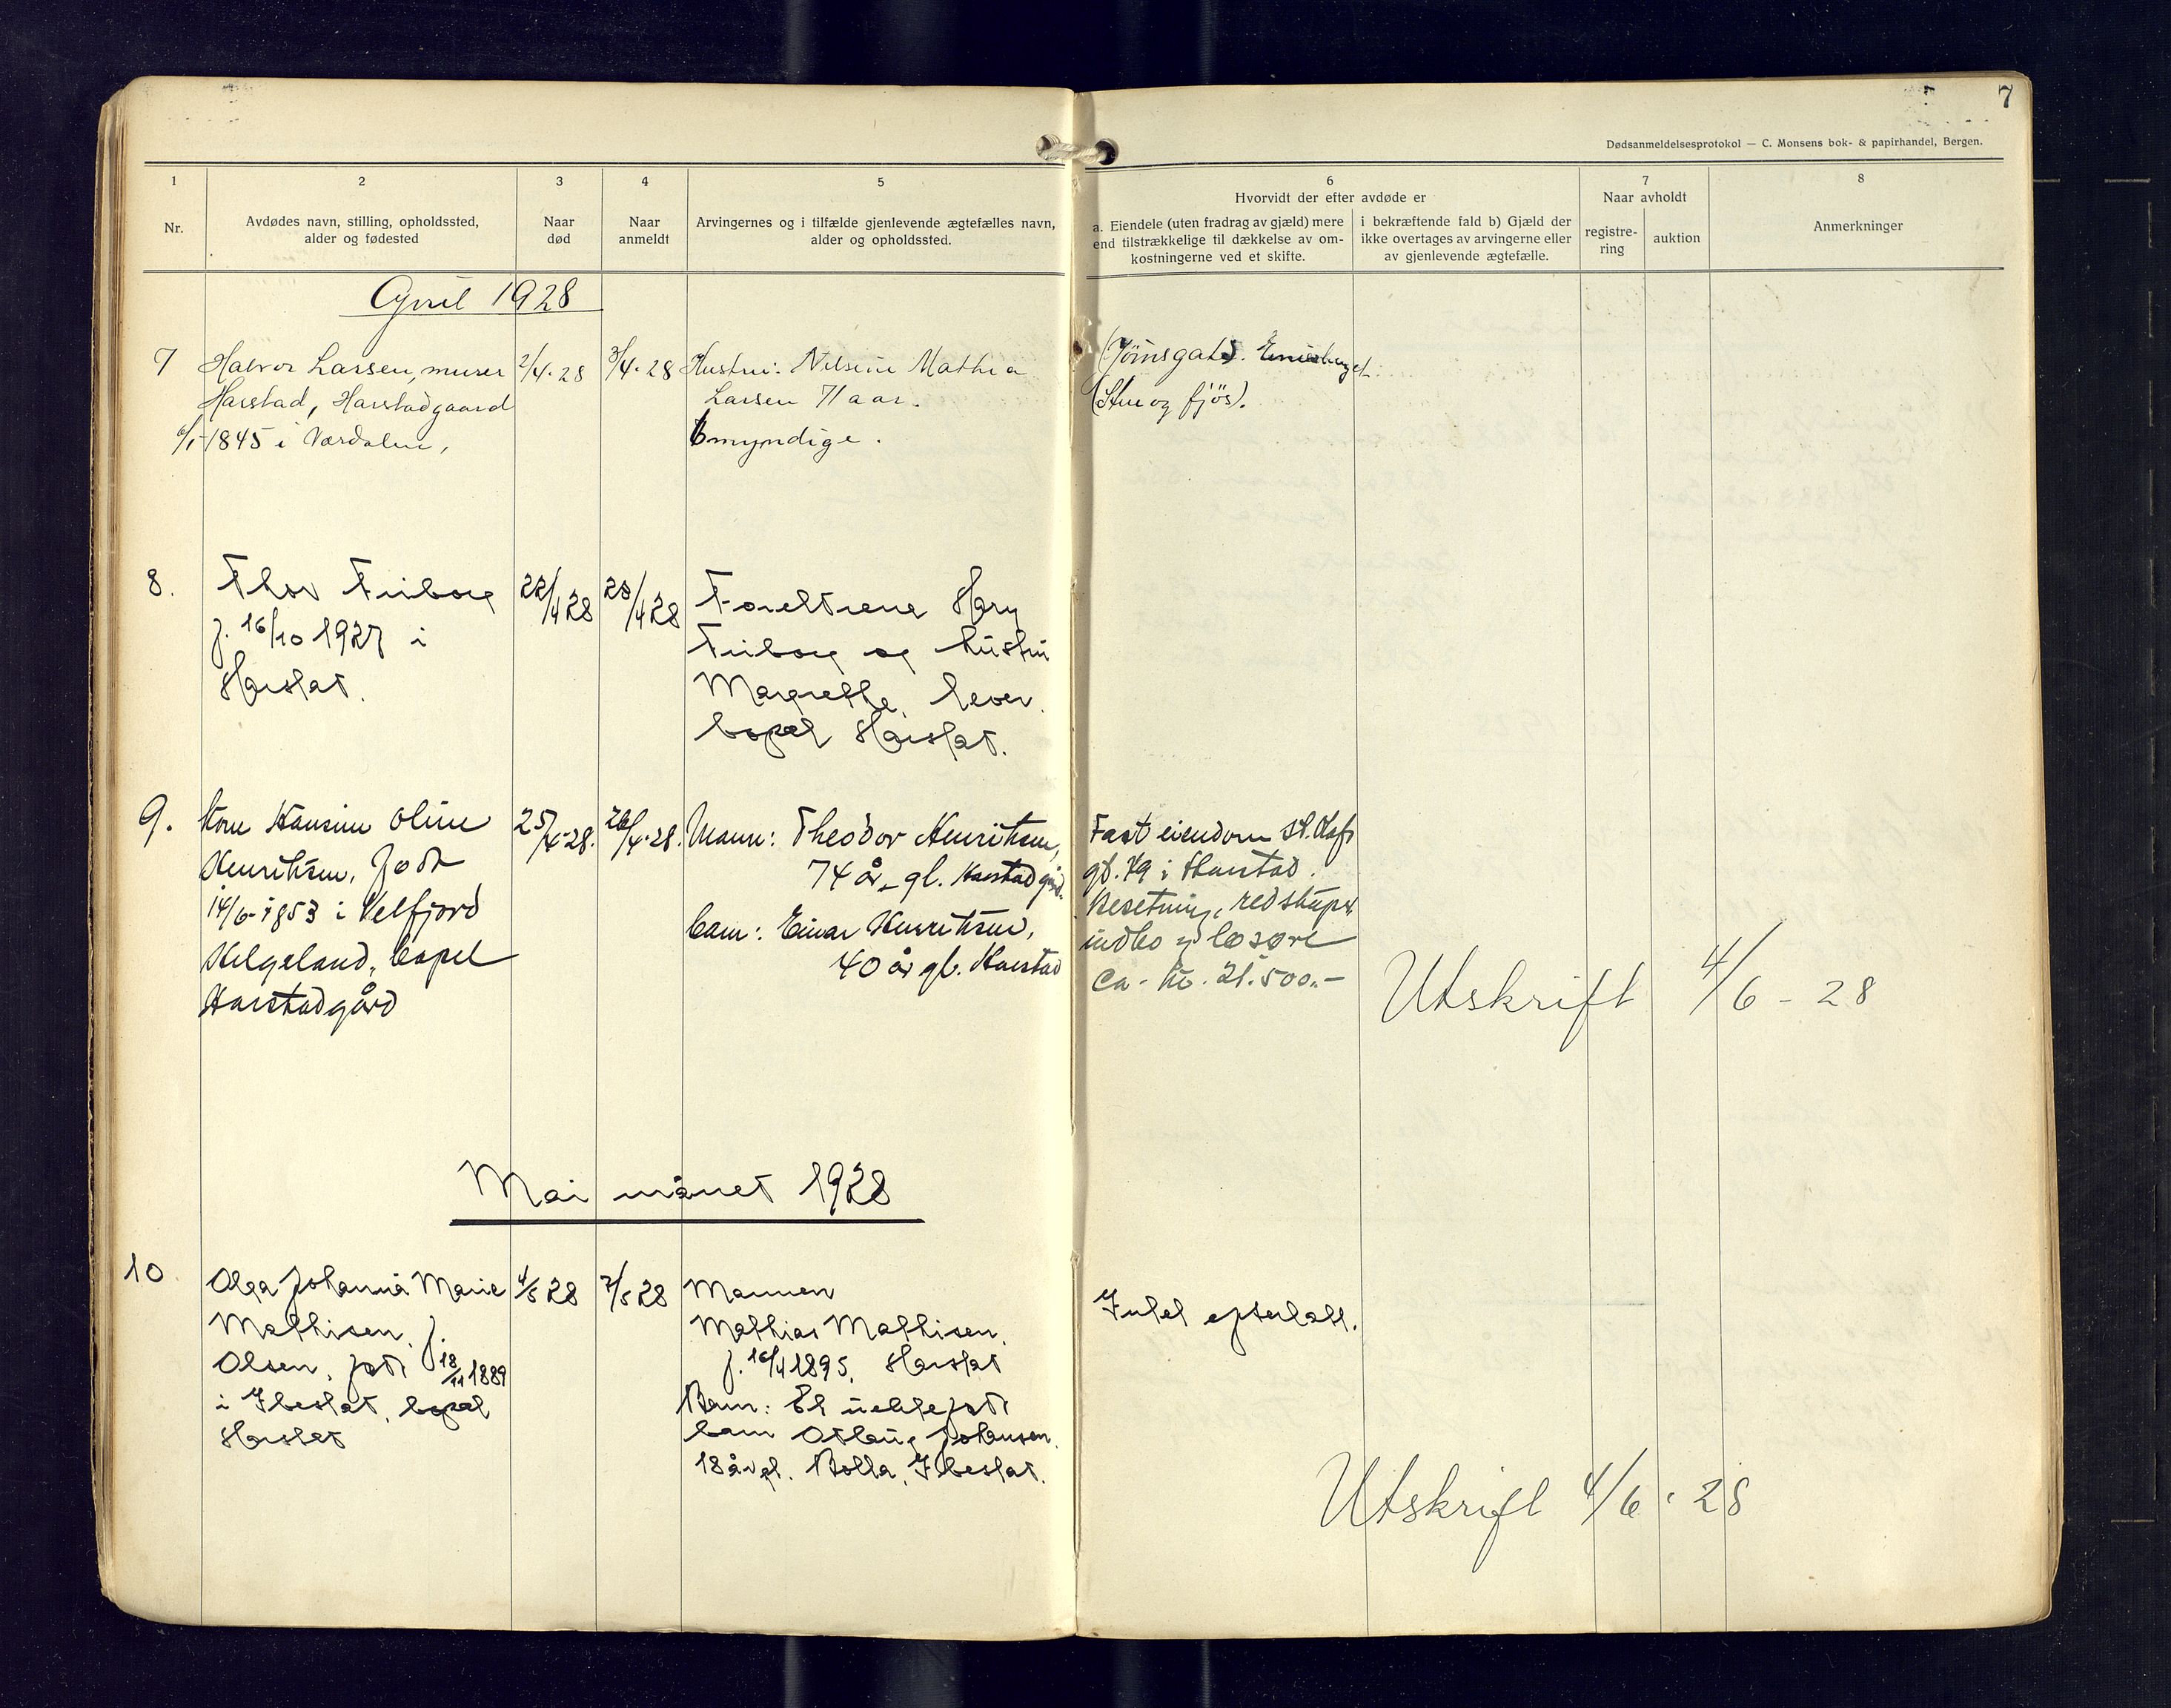 7
Dødsanmeldelsesprotokol — C. Monsens bok- & papirhandel, Bergen.
1
2
3
4
5
6
7
8
Nr.
Avdødes navn, stilling, opholdssted,
alder og fødested
Naar
død
Naar
anmeldt
Arvingernes og i tilfælde gjenlevende ægtefælles navn,
alder og opholdssted.
Hvorvidt der efter avdøde er
a. Eiendele (uten fradrag av gjæld) mere
end tilstrækkelige til dækkelse av om-
kostningerne ved et skifte.
i bekræftende fald b) Gjæld der
ikke overtages av arvingerne eller
av gjenlevende ægtefælle.
Naar avholdt
registre-
ring
auktion
Anmerkninger
April 1928
7
Halvor Larsen, murer
Harstad, Harstadgaard
6/1-1845 i Værdalen,
2/4-28
3/4-28
Hustru: Nilsine Mathea
Larsen 71 aar.
6 myndige.
(Stue og fjös).
8.
Thor Friborg
f. 16/10 1927 i
Harstat.
22/4 28
23/4 28
Foreldrene Hary
Friborg og hustru
Margrethe, lever.
bopæl Harstat.
9.
Kone Hansine Oline
Henriksen, født
14/6-1853 i Velfjord
Helgeland, bopel
Harstadgård
25/4-28.
26/4-28.
Mann: Theodor Henriksen,
74 år gl. Harstadgård.
barn: Einar Henriksen,
40 år gl. Harstad
Fast eiendom St. Olafs
gt. i Harstad.
Besetning, redskaper,
indbo og løsøre
Ca. kr. 21.500.-
Utskrift 4/6-28
Mai månet 1928
10
Olga Johanna Marie
Mathisen, f.
Olsen, født 18/11 1889
i Ibestat, bopæl
Harstat
4/5 28
7/5 28
Mannen
Mathias Mathisen,
f. 16/4 1895, Harstat
Barn: Et uektefødt
barn Johansen,
18 år gl. Rolla, Ibestat.
Intet efterlatt.
Utskrift 4/6-28